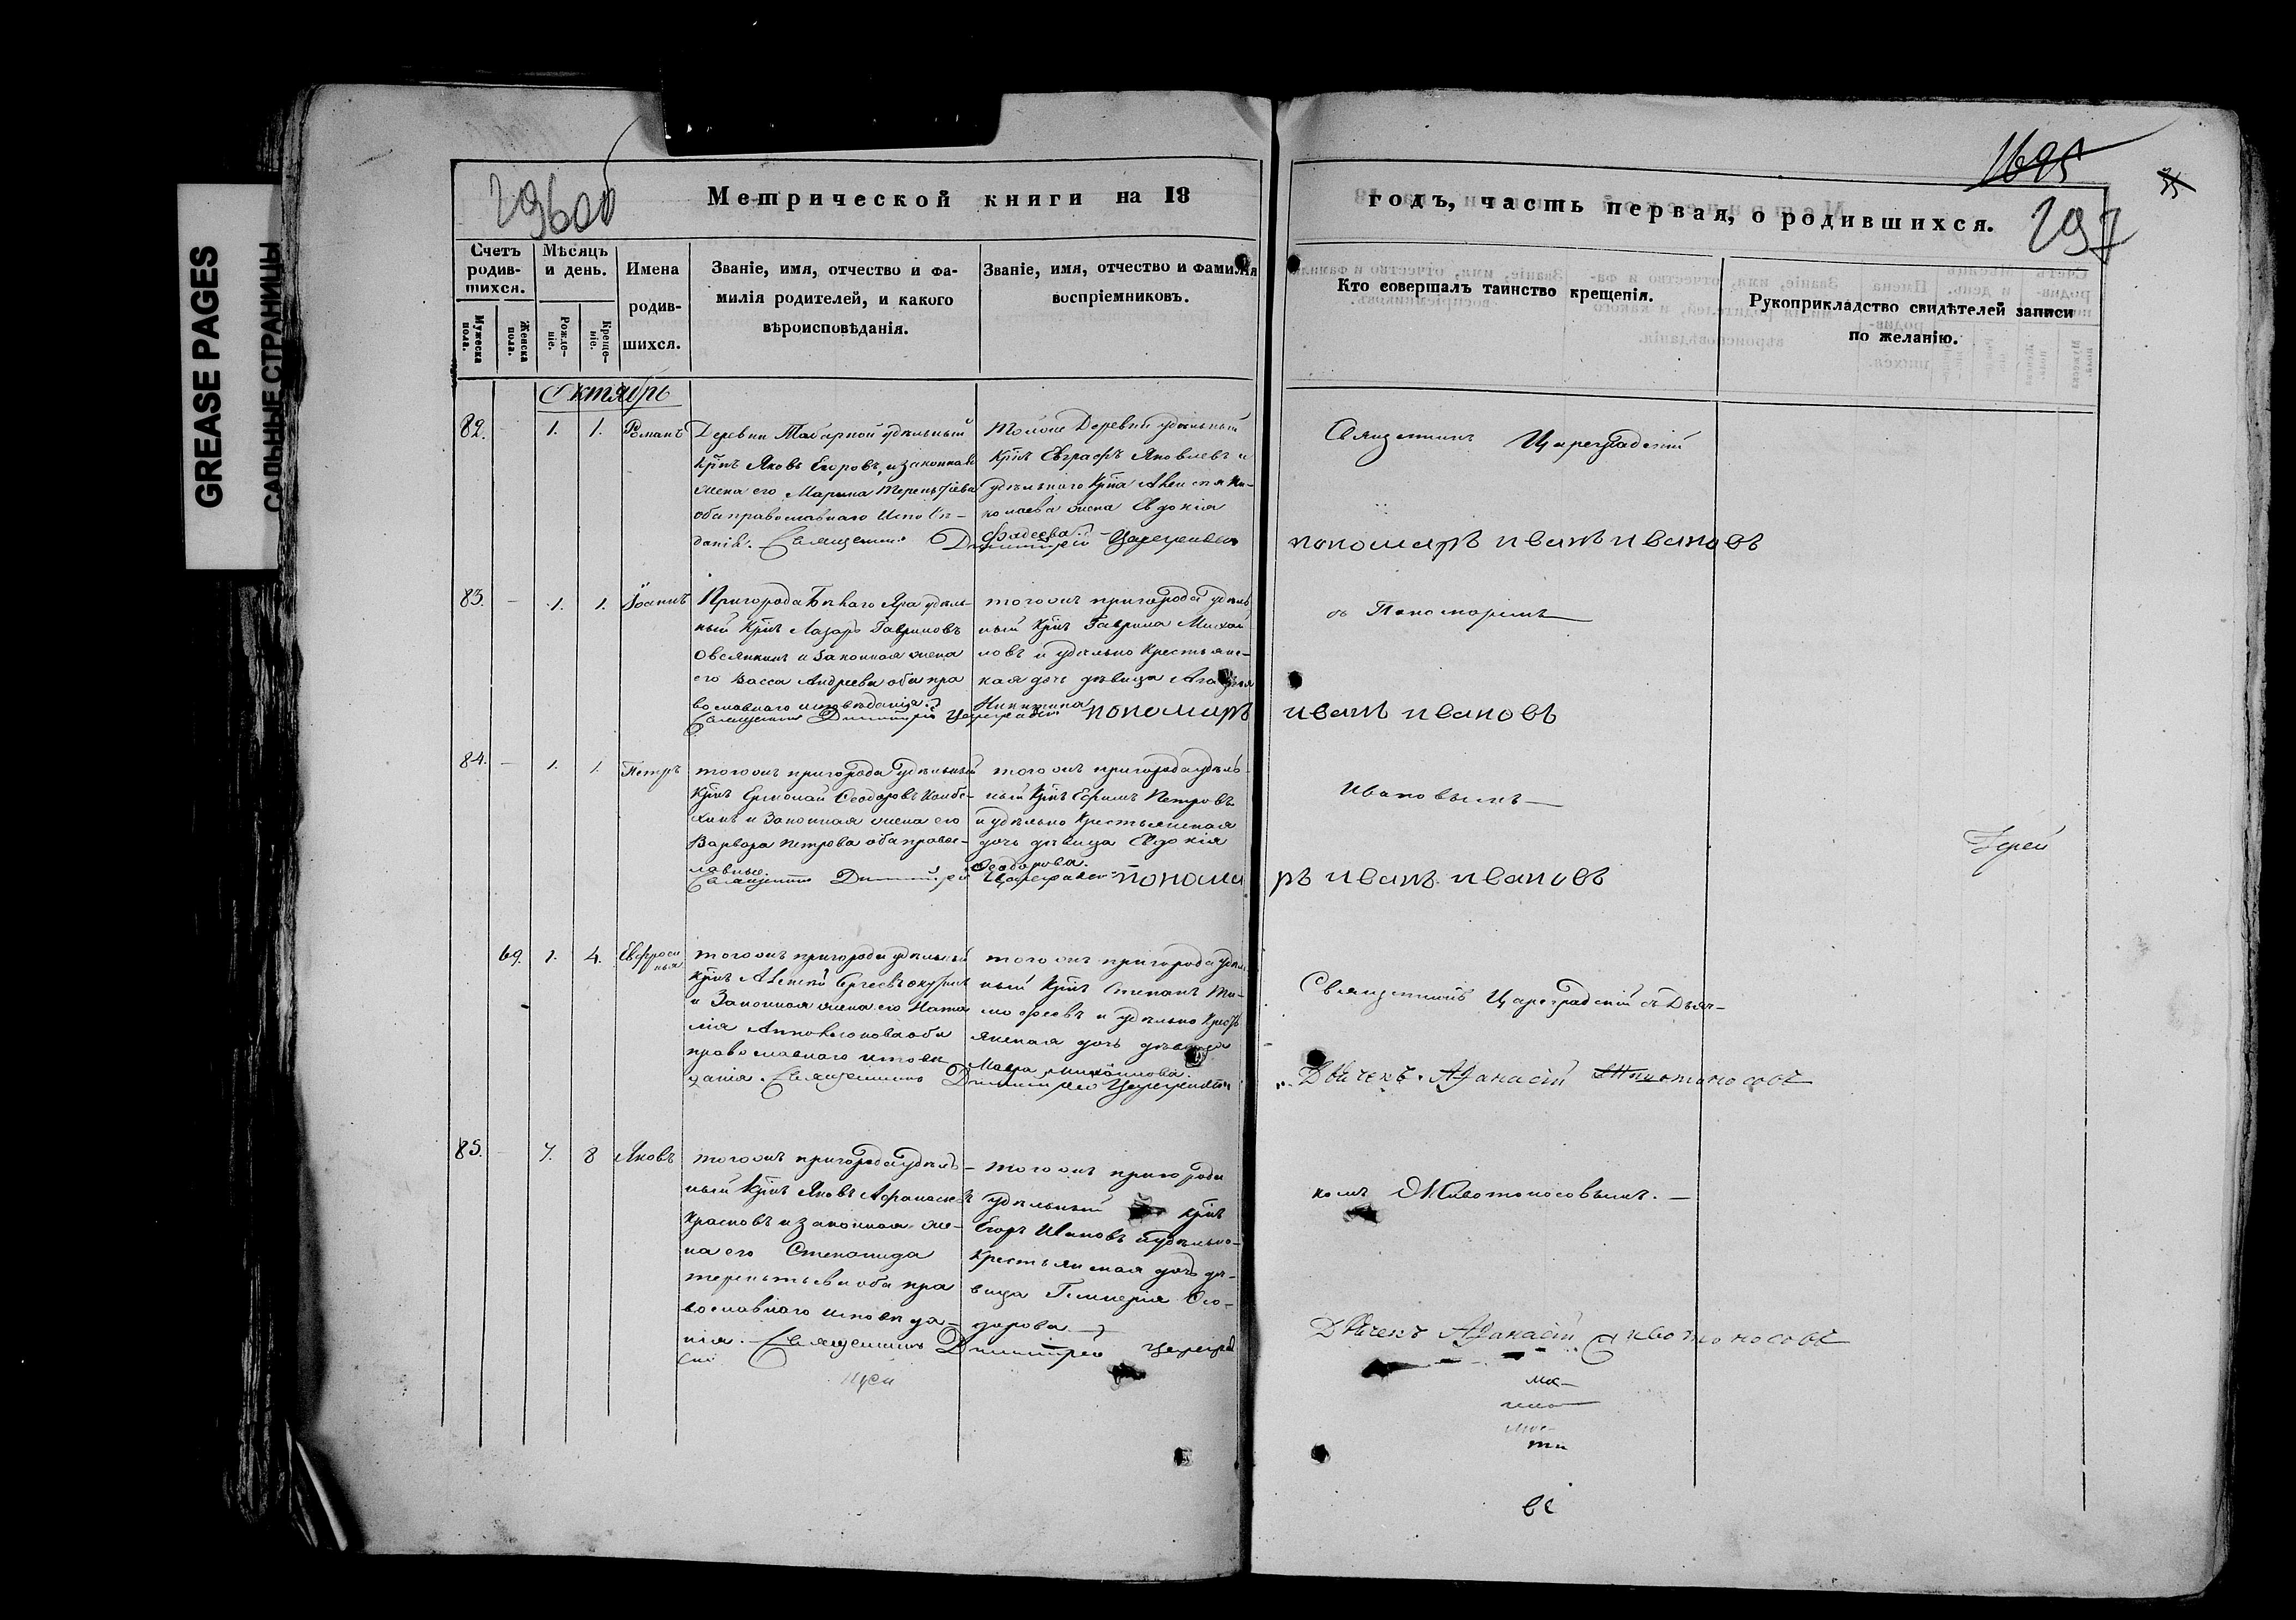 GREASE PAGES
САЛЬНЫЕ СТРАНИЦЫ
29600
Метрической книги на 18
годъ, часть первая, о родившихся.
1695
297
Счетъ родившихся.
Мужеска пола.
Женска пола.
Мѣсяцъ и день.
Рожденіе.
Крещеніе.
Имена родившихся.
Званіе, имя, отчество и фамилія родителей, и какого вѣроисповѣданія.
Званіе, имя, отчество и фамилія воспріемниковъ.
Кто совершалъ таинство крещенія.
Рукоприкладство свидѣтелей записи по желанію.
Октябрь
82. - 1. 1. Романъ
Деревни удѣльный
Крнъ Яковъ Егоровъ, и законная
жена его Марина Терентьева
оба православнаго исповѣ-
данія. Священникъ Димитрей Цареградскій
Тойже Деревни удѣльный
Крнъ Евграфъ Яковлевъ и
удѣльнаго Крна Ни-
колаева жена Евдокія
Фадеева.
Священникъ Цареградскій
пономаръ иванъ ивановъ
83. - 1. 1. Іоаннъ
Пригорода Бѣлаго Яра удѣль-
ный Крнъ Лазарь Гавриловъ
Овсянкинъ и Законная жена
его Васса Андреева оба пра
вославнаго исповѣданія.
Священникъ Димитрій Цареградскій
тогожъ пригорода удѣль
ный Крнъ Гаврила Михай
ловъ и удѣльно Крестьянс-
кая дочь дѣвица
Никитина
съ Пономаремъ
пономаръ иванъ ивановъ
84. - 1. 1. Петръ
тогожъ пригорода удѣльный
Крнъ Ермолай Ѳеодоровъ
и Законная жена его
Варвара Петрова оба правос-
лавные.
Священникъ Димитрей Цареградскій
тогожъ пригорода удѣль-
ный Крнъ Ефимъ Петровъ
и удѣльно Крестьянская
дочь дѣвица Евдокія
Ѳеодорова.
Ивановымъ
Іерей
пономаръ иванъ ивановъ
69. 1. 4. Евфросинья
тогожъ пригорода удѣльный
Крнъ Алексѣй Сергеевъ
и Законная жена его Ната
лія оба
православнаго исповѣ
данія. Священникъ Димитрей Цареградскій
тогожъ пригорода удѣль
ный Крнъ Степанъ Ти-
мофеевъ и удѣльно Кресть
янская дочь дѣвица
Мавра Михайлова.
Священникъ Цареградскій съ Дьяч-
Дьячекъ Афанасій Животоносовъ
85. - 7. 8 Яковъ
тогожъ пригорода удѣль-
ный Крнъ Яковъ Афанасьевъ
Красновъ и законная же-
на его Степанида
терентьева оба пра
вославнаго исповѣда-
нія. Священникъ Димитрей Цареград
скій
тогожъ пригорода
удѣльный крнъ
Егоръ Ивановъ и удѣльно-
Крестьянская дочь дѣ-
вица Гликерія Ѳео-
дорова.
комъ Животоносовымъ.
Дьячекъ Афанасій Животоносовъ